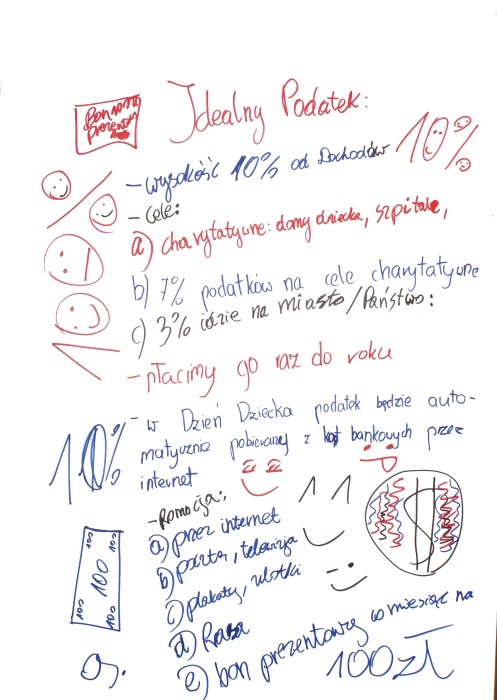 Bon na 100zł
prezentowy
Idealny Podatek:
10%
- wysokość 10% od Dochodów
- cele:
a) charytatywne: domy dziecka, szpitale,
b) 7% podatków na cele charytatywne
c) 3% idzie na miasto/Państwo:
- płacimy go raz do roku
10%
- w Dzień Dziecka podatek będzie auto-
matycznie pobierany z kąt bankowych przez
internet
- Promocja:
a) przez internet
b) poczta, telewizja
c) plakaty, ulotki
d) Radio
e) bon prezentowy w miesiąc na
100zł
100 100
100
100 100
$